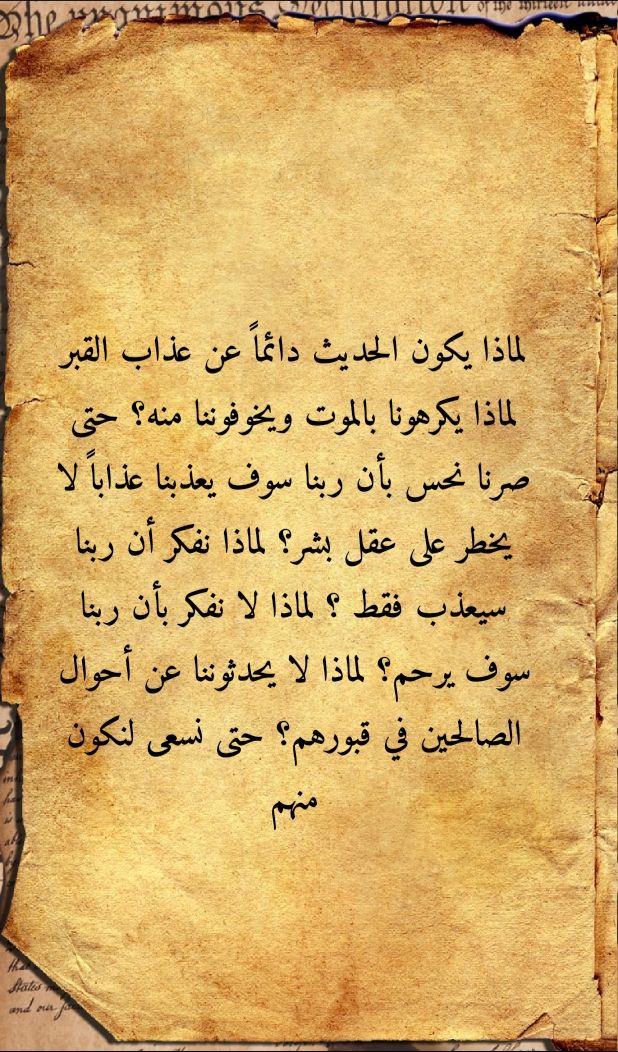 The unanimous Declaration of the thirteen united
لماذا يكون الحديث دائماً عن عذاب القبر
لماذا يكرهونا بالموت ويخوفوننا منه؟ حتى
صرنا نحس بأن ربنا سوف يعذبنا عذاباً لا
يخطر على عقل بشر؟ لماذا نفكر أن ربنا
سيعذب فقط ؟ لماذا لا نفكر بأن ربنا
سوف يرحم؟ لماذا لا يحدثوننا عن أحوال
الصالحين في قبورهم؟ حتى نسعى لنكون
منهم
that
States
and our